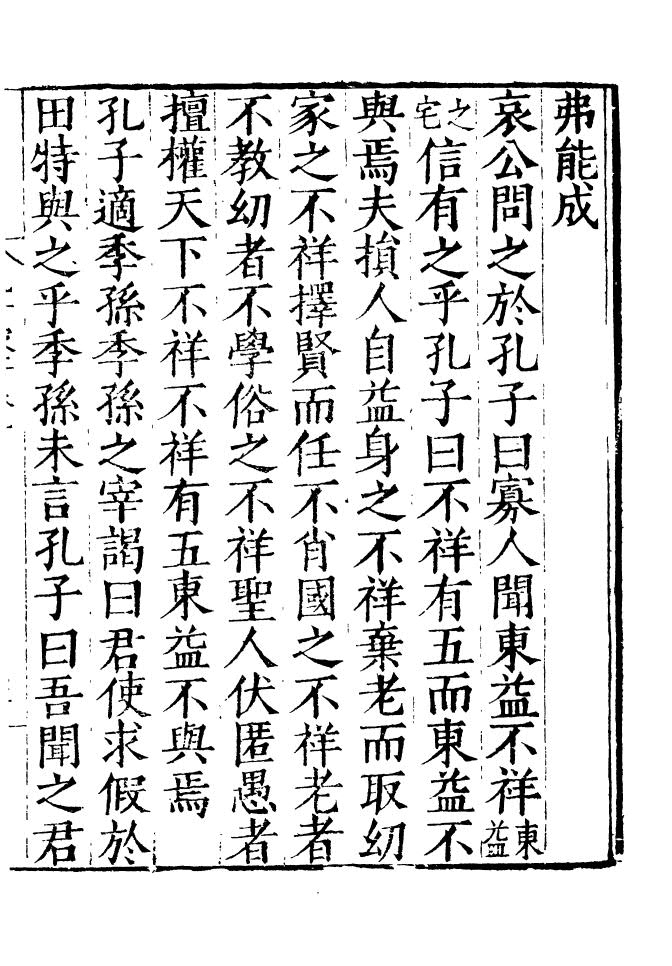 弗能成
哀公問之於孔子曰寡人聞東益不祥東益
之宅信有之乎孔子曰不祥有五而東益不
與焉夫損人自益身之不祥棄老而取幼
家之不祥擇賢而任不肖國之不祥老者
不教幼者不學俗之不祥聖人伏匿愚者
擅權天下不祥不祥有五東益不與焉
孔子適季孫季孫之宰謁曰君使求假於
田特與之乎季孫未言孔子曰吾聞之君